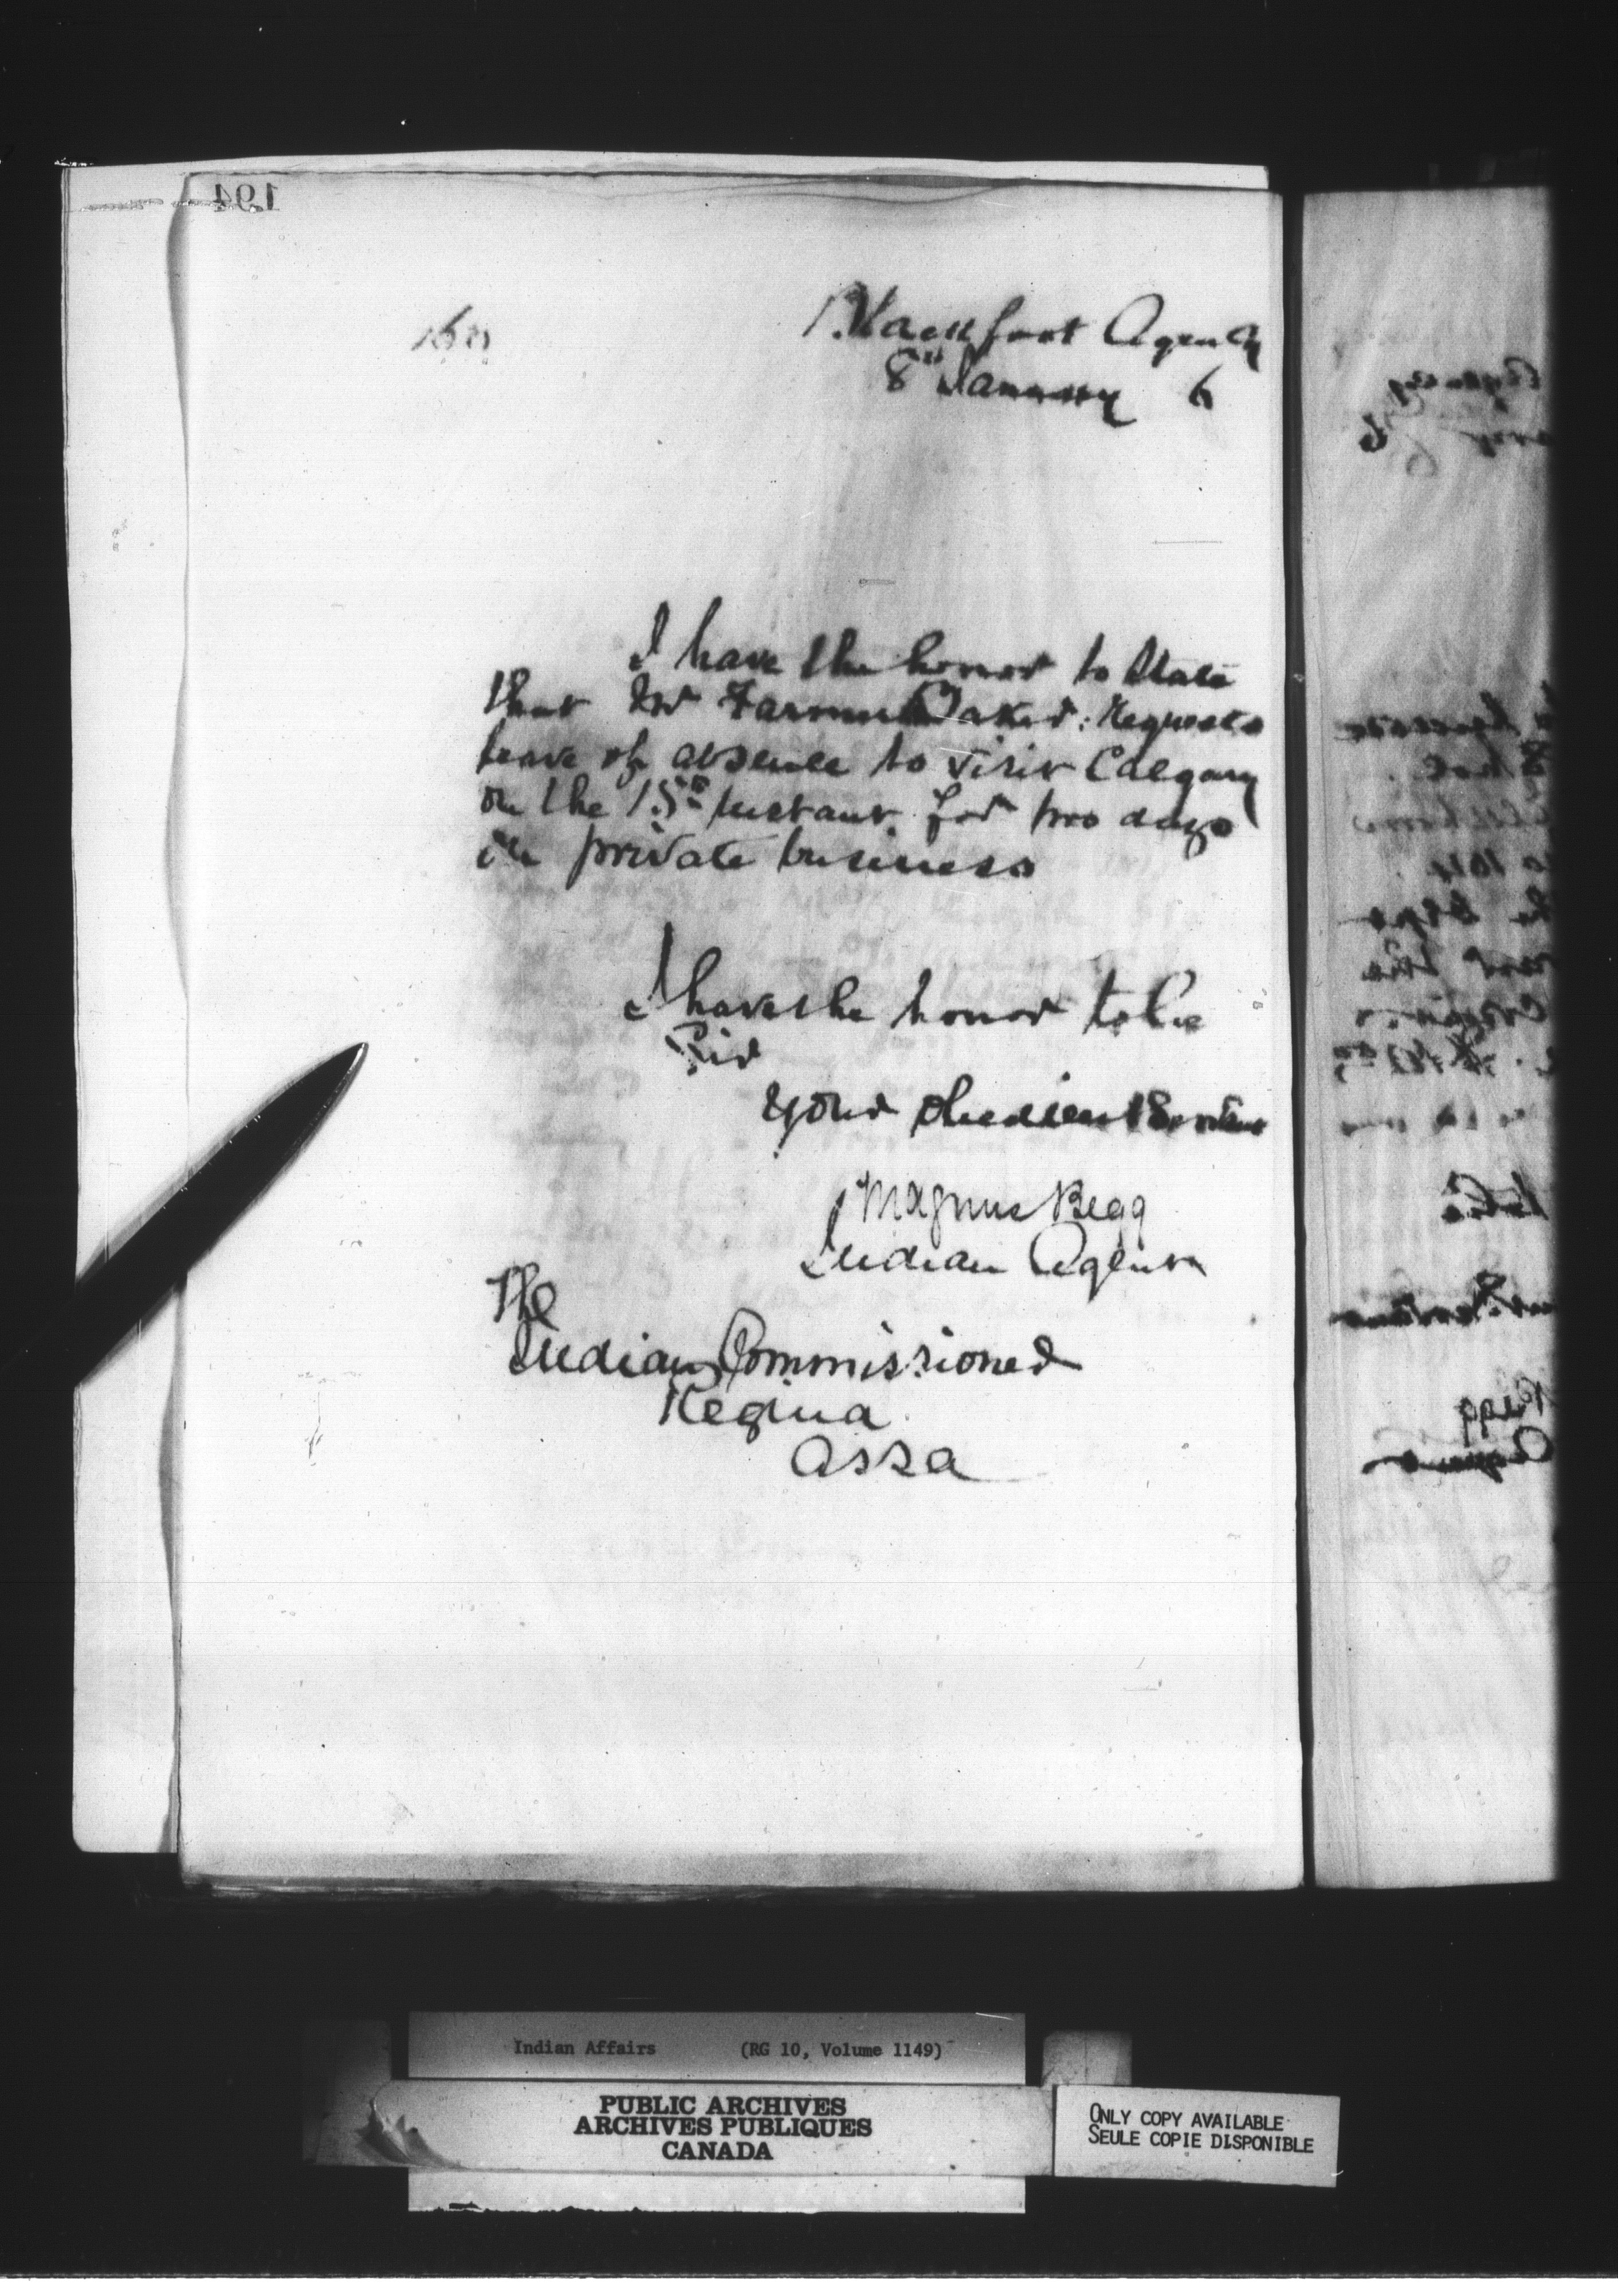 194
Blackfoot Agency
8th January 6
I have the honor to state
that Farmer Baker: Requests
leave of absence to visit Calgary
on the 15th Instant. for two days
on private business
I have the honor to be
Sir
Your obedient Servant
Magnus Begg
Indian Agent
The
Indian Commissioner
Regina
Assa
Indian Affairs (RG 10, Volume 1149)
PUBLIC ARCHIVES
ARCHIVES PUBLIQUES
CANADA
ONLY COPY AVAILABLE
SEULE COPIE DISPONIBLE